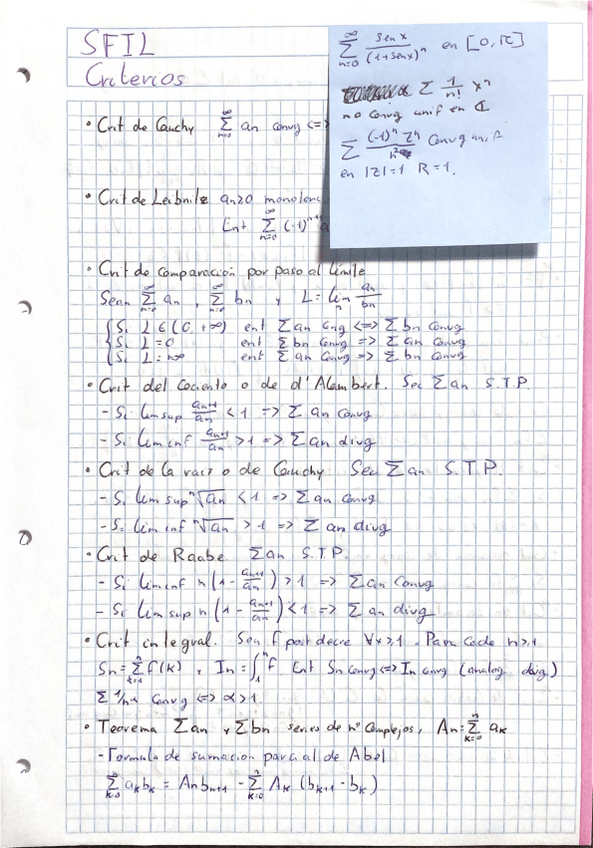 SFIL
Criterios
∞
Σ sen x / (1+sen x)^n en [0, π]
n=0
Σ 1/n! x^n
no convg unif en ℂ
Σ (-1)^n z^n / n² Convg unif
en |z|=1 R=1.
• Crit de Cauchy Σ_{n=0}^∞ an convg <=>
• Crit de Leibnitz an≥0 monotona
Ent Σ_{n=0}^∞ (-1)^{n+1} a
• Crit de comparación por paso al límite
Sean Σ_{n=0}^∞ an, Σ_{n=0}^∞ bn y L = lim_n an/bn
Si L ∈ (0, +∞) ent Σ an cng <=> Σ bn convg
Si L = 0 ent Σ bn convg => Σ an convg
Si L = +∞ ent Σ an convg => Σ bn convg
• Crit del cociente o de d'Alambert. Sea Σ an S.T.P.
- Si lim sup an+1/an < 1 => Σ an convg
- Si lim inf an+1/an > 1 => Σ an divg
• Crit de la raiz o de Cauchy. Sea Σ an S.T.P.
- Si lim sup ⁿ√an < 1 => Σ an convg
- Si lim inf ⁿ√an > 1 => Σ an divg
• Crit de Raabe. Σ an S.T.P.
- Si lim inf n (1 - an+1/an) > 1 => Σ an convg
- Si lim sup n (1 - an+1/an) < 1 => Σ an divg
• Crit integral. Sea f post decre ∀x≥1. Para cada n≥1
Sn = Σ_{k=1}^n f(k), In = ∫_1^n f Ent Sn convg <=> In convg (analog divg)
Σ 1/n^α convg <=> α>1
• Teorema Σ an y Σ bn series de nº complejos, An = Σ_{k=0}^n ak
- Formula de sumación parcial de Abel
Σ_{k=0}^∞ ak bk = An bn+1 - Σ_{k=0}^n Ak (bk+1 - bk)